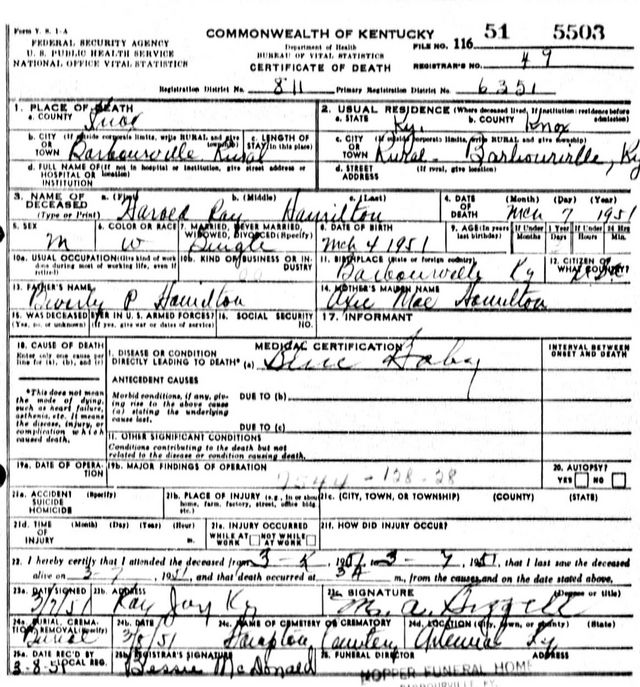 Form V. S. 1-A
FEDERAL SECURITY AGENCY
U. S. PUBLIC HEALTH SERVICE
NATIONAL OFFICE VITAL STATISTICS
COMMONWEALTH OF KENTUCKY
Department of Health
BUREAU OF VITAL STATISTICS
CERTIFICATE OF DEATH
FILE NO. 116 51 5503
REGISTRAR'S NO. 49
Registration District No. 811 Primary Registration District No. 6351
1. PLACE OF DEATH
a. COUNTY Knox
2. USUAL RESIDENCE (Where deceased lived, If institution: residence before admission)
a. STATE Ky. b. COUNTY Knox
b. CITY (If outside corporate limits, write RURAL and give township) OR TOWN Barbourville Rural
c. LENGTH OF STAY (in this place)
c. CITY (If outside corporate limits, write RURAL and give township) OR TOWN Rural - Barbourville, Ky
d. FULL NAME OF (If not in hospital or institution, give street address or location) HOSPITAL OR INSTITUTION
d. STREET ADDRESS (If rural, give location)
3. NAME OF DECEASED (Type or Print) a. (First) Harold b. (Middle) Ray c. (Last) Hamilton
4. DATE OF DEATH (Month) (Day) (Year) Mch 7 1951
5. SEX M
6. COLOR OR RACE W
7. MARRIED, NEVER MARRIED, WIDOWED, DIVORCED (Specify) Single
8. DATE OF BIRTH Mch 4 1951
9. AGE (In years last birthday) If Under 1 Year Months Days If Under 24 Hrs Hours Min.
10a. USUAL OCCUPATION (Give kind of work done during most of working life, even if retired)
10b. KIND OF BUSINESS OR INDUSTRY
11. BIRTHPLACE (State or foreign country) Barbourville Ky
12. CITIZEN OF WHAT COUNTRY?
13. FATHER'S NAME Beverly P Hamilton
14. MOTHER'S MAIDEN NAME Mae Hamilton
15. WAS DECEASED EVER IN U. S. ARMED FORCES? (Yes, no, or unknown) (If yes, give war or dates of service)
16. SOCIAL SECURITY NO.
17. INFORMANT
18. CAUSE OF DEATH
Enter only one cause per line for (a), (b), and (c)
MEDICAL CERTIFICATION
INTERVAL BETWEEN ONSET AND DEATH
I. DISEASE OR CONDITION DIRECTLY LEADING TO DEATH* (a) Blue Baby
*This does not mean the mode of dying, such as heart failure, asthenia, etc. It means the disease, injury, or complication which caused death.
ANTECEDENT CAUSES
Morbid conditions, if any, giving rise to the above cause (a) stating the underlying cause last.
DUE TO (b)
DUE TO (c)
II. OTHER SIGNIFICANT CONDITIONS
Conditions contributing to the death but not related to the disease or condition causing death.
19a. DATE OF OPERATION
19b. MAJOR FINDINGS OF OPERATION
7544-128-28
20. AUTOPSY? YES NO
21a. ACCIDENT SUICIDE HOMICIDE (Specify)
21b. PLACE OF INJURY (e.g., in or about home, farm, factory, street, office bldg. etc.)
21c. (CITY, TOWN, OR TOWNSHIP) (COUNTY) (STATE)
21d. TIME OF INJURY (Month) (Day) (Year) (Hour) m.
21e. INJURY OCCURRED WHILE AT WORK NOT WHILE AT WORK
21f. HOW DID INJURY OCCUR?
22. I hereby certify that I attended the deceased from 3-5, 1951, to 3-7, 1951, that I last saw the deceased
alive on 3-7, 1951, and that death occurred at 3 A m., from the causes and on the date stated above.
23a. DATE SIGNED 3/7/51
23b. ADDRESS Kay Jay Ky
23c. SIGNATURE (Degree or title)
24a. BURIAL, CREMATION, REMOVAL (Specify) Burial
24b. DATE 3/8/51
24c. NAME OF CEMETERY OR CREMATORY Cemetery
24d. LOCATION (City, town, or county) (State) Artemus Ky
25a. DATE REC'D BY LOCAL REG. 3-8-51
25b. REGISTRAR'S SIGNATURE Bessie McDonald
26. FUNERAL DIRECTOR ADDRESS
HOPPER FUNERAL HOME
BARBOURVILLE, KY.